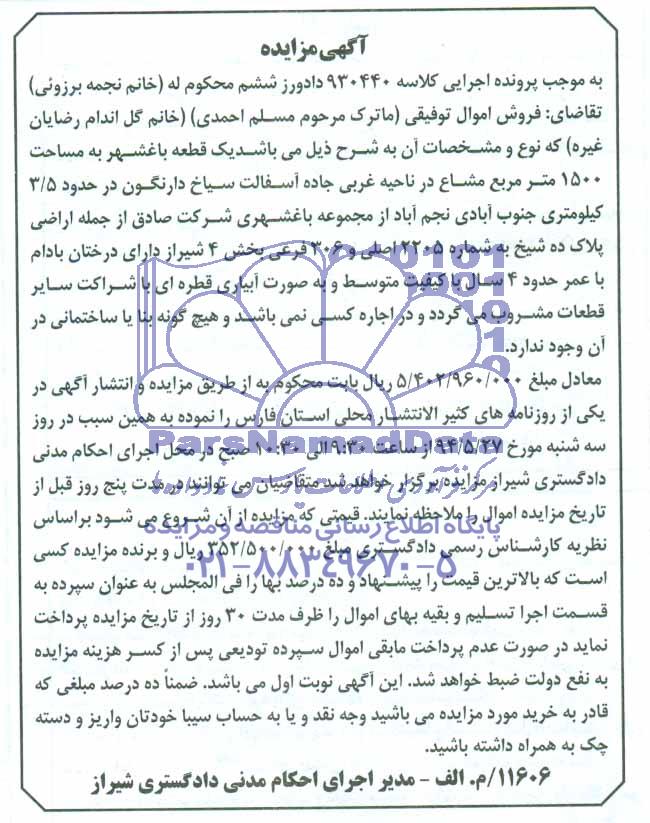 آگهی مزایده
به موجب پرونده اجرایی کلاسه ۹۳۰۴۴۰ دادورز ششم محکوم له (خانم نجمه برزوئی)
تقاضای: فروش اموال توقیفی (ماترک مرحوم مسلم احمدی) (خانم گل اندام رضایان
غیره) که نوع و مشخصات آن به شرح ذیل می باشدیک قطعه باغشهر به مساحت
۱۵۰۰ متر مربع مشاع در ناحیه غربی جاده آسفالت سیاخ دارنگون در حدود ۳/۵
کیلومتری جنوب آبادی نجم آباد از مجموعه باغشهری شرکت صادق از جمله اراضی
پلاک ده شیخ به شماره ۲۲۰۵ اصلی و ۳۰۶ فرعی بخش ۴ شیراز دارای درختان بادام
با عمر حدود ۴ سال با کیفیت متوسط و به صورت آبیاری قطره ای با شراکت سایر
قطعات مشروب می گردد و در اجاره کسی نمی باشد و هیچ گونه بنا یا ساختمانی در
آن وجود ندارد.
معادل مبلغ ۵/۴۰۲/۹۶۰/۰۰۰ ریال بابت محکوم به از طریق مزایده و انتشار آگهی در
یکی از روزنامه های کثیر الانتشار محلی استان فارس را نموده به همین سبب در روز
سه شنبه مورخ ۹۴/۵/۲۷ از ساعت ۹:۳۰ الی ۱۰:۳۰ صبح در محل اجرای احکام مدنی
دادگستری شیراز مزایده برگزار خواهد شد متقاضیان می توانند در مدت پنج روز قبل از
تاریخ مزایده اموال را ملاحظه نمایند. قیمتی که مزایده از آن شروع می شود براساس
نظریه کارشناس رسمی دادگستری مبلغ ۳۵۲/۵۰۰/۰۰۰ ریال و برنده مزایده کسی
است که بالاترین قیمت را پیشنهاد و ده درصد بها را فی المجلس به عنوان سپرده به
قسمت اجرا تسلیم و بقیه بهای اموال را ظرف مدت ۳۰ روز از تاریخ مزایده پرداخت
نماید در صورت عدم پرداخت مابقی اموال سپرده تودیعی پس از کسر هزینه مزایده
به نفع دولت ضبط خواهد شد. این آگهی نوبت اول می باشد. ضمناً ده درصد مبلغی که
قادر به خرید مورد مزایده می باشید وجه نقد و یا به حساب سیبا خودتان واریز و دسته
چک به همراه داشته باشید.
۱۱۶۰۶/م. الف - مدیر اجرای احکام مدنی دادگستری شیراز
ParsNamadData
پایگاه اطلاع رسانی مناقصه و مزایده
۰۲۱-۸۸۳۴۹۶۷۰-۵